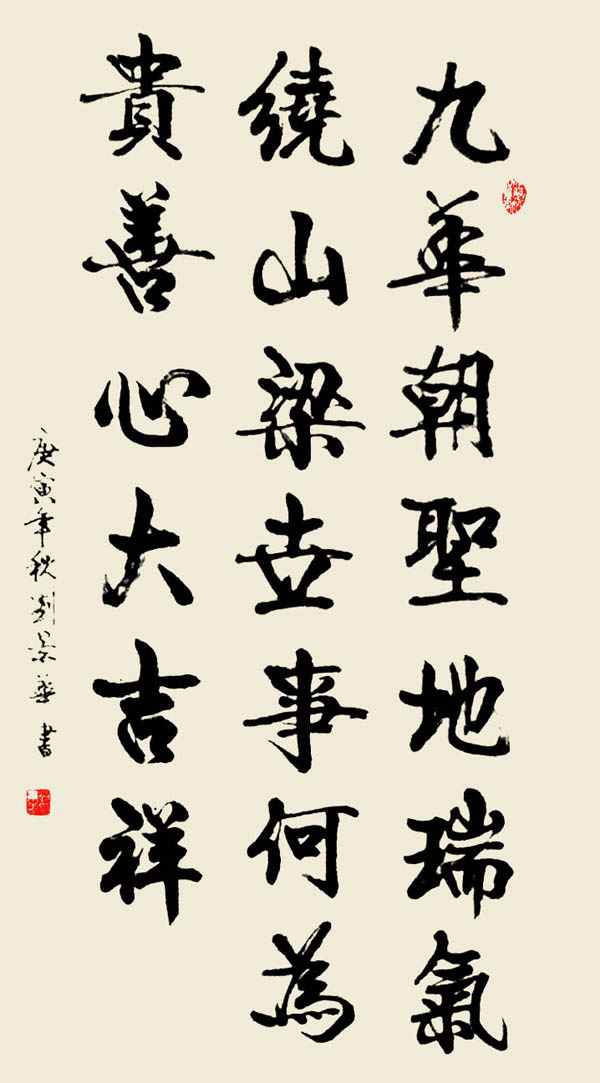 九華朝聖地瑞氣
繞山梁世事何為
貴善心大吉祥
庚寅年秋刘景華書